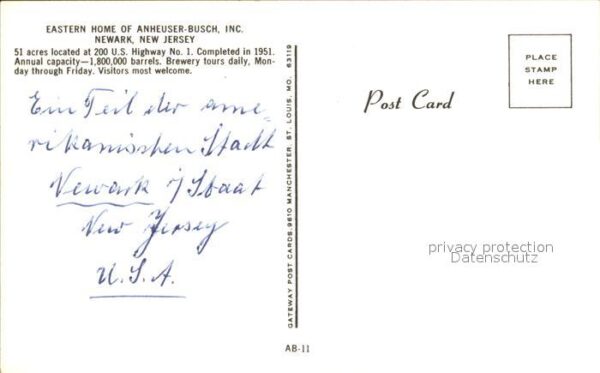 EASTERN HOME OF ANHEUSER-BUSCH, INC.
NEWARK, NEW JERSEY
51 acres located at 200 U.S. Highway No. 1. Completed in 1951.
Annual capacity—1,800,000 barrels. Brewery tours daily, Mon-
day through Friday. Visitors most welcome.
Ein Teil der ame-
rikanischen Stadt
Newark / Staat
New Jersey
U.S.A.
GATEWAY POST CARDS, 9610 MANCHESTER, ST. LOUIS, MO. 63119
Post Card
PLACE
STAMP
HERE
privacy protection
Datenschutz
AB-11